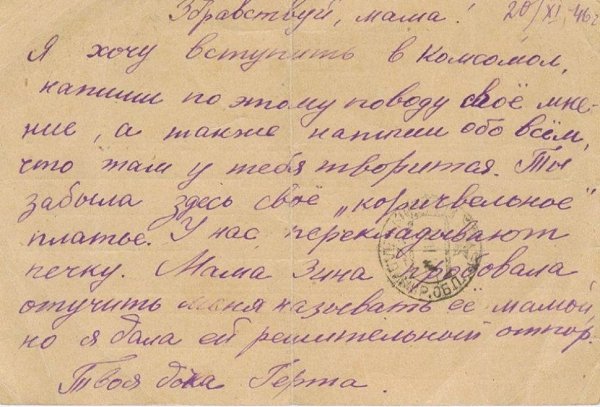 Здравствуй, мама! 20/XI 46 г
Я хочу вступить в Комсомол,
напиши по этому поводу своё мне-
ние, а также напиши обо всём,
что там у тебя творится. Ты
забыла здесь своё „коричвельное"
платье. У нас перекладывают
печку. Мама Зина пробовала
отучить меня называть её мамой,
но я дала ей решительный отпор.
Твоя Герта.